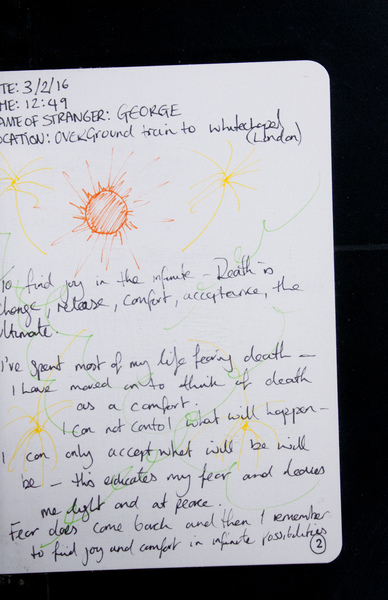 TE: 3/2/16
ME: 12:49
AME OF STRANGER: GEORGE
OCATION: OVERGROUND train to Whitechapel
(London)
To find joy in the infinite – Death is
change, release, comfort, acceptance, the
ultimate.
I've spent most of my life fearing death –
I have moved on to think of death
as a comfort.
I can not contol what will happen –
I can only accept what will be will
be – this eradicates my fear and leaves
me light and at peace.
Fear does come back and then I remember
to find joy and comfort in infinite possibilities
2